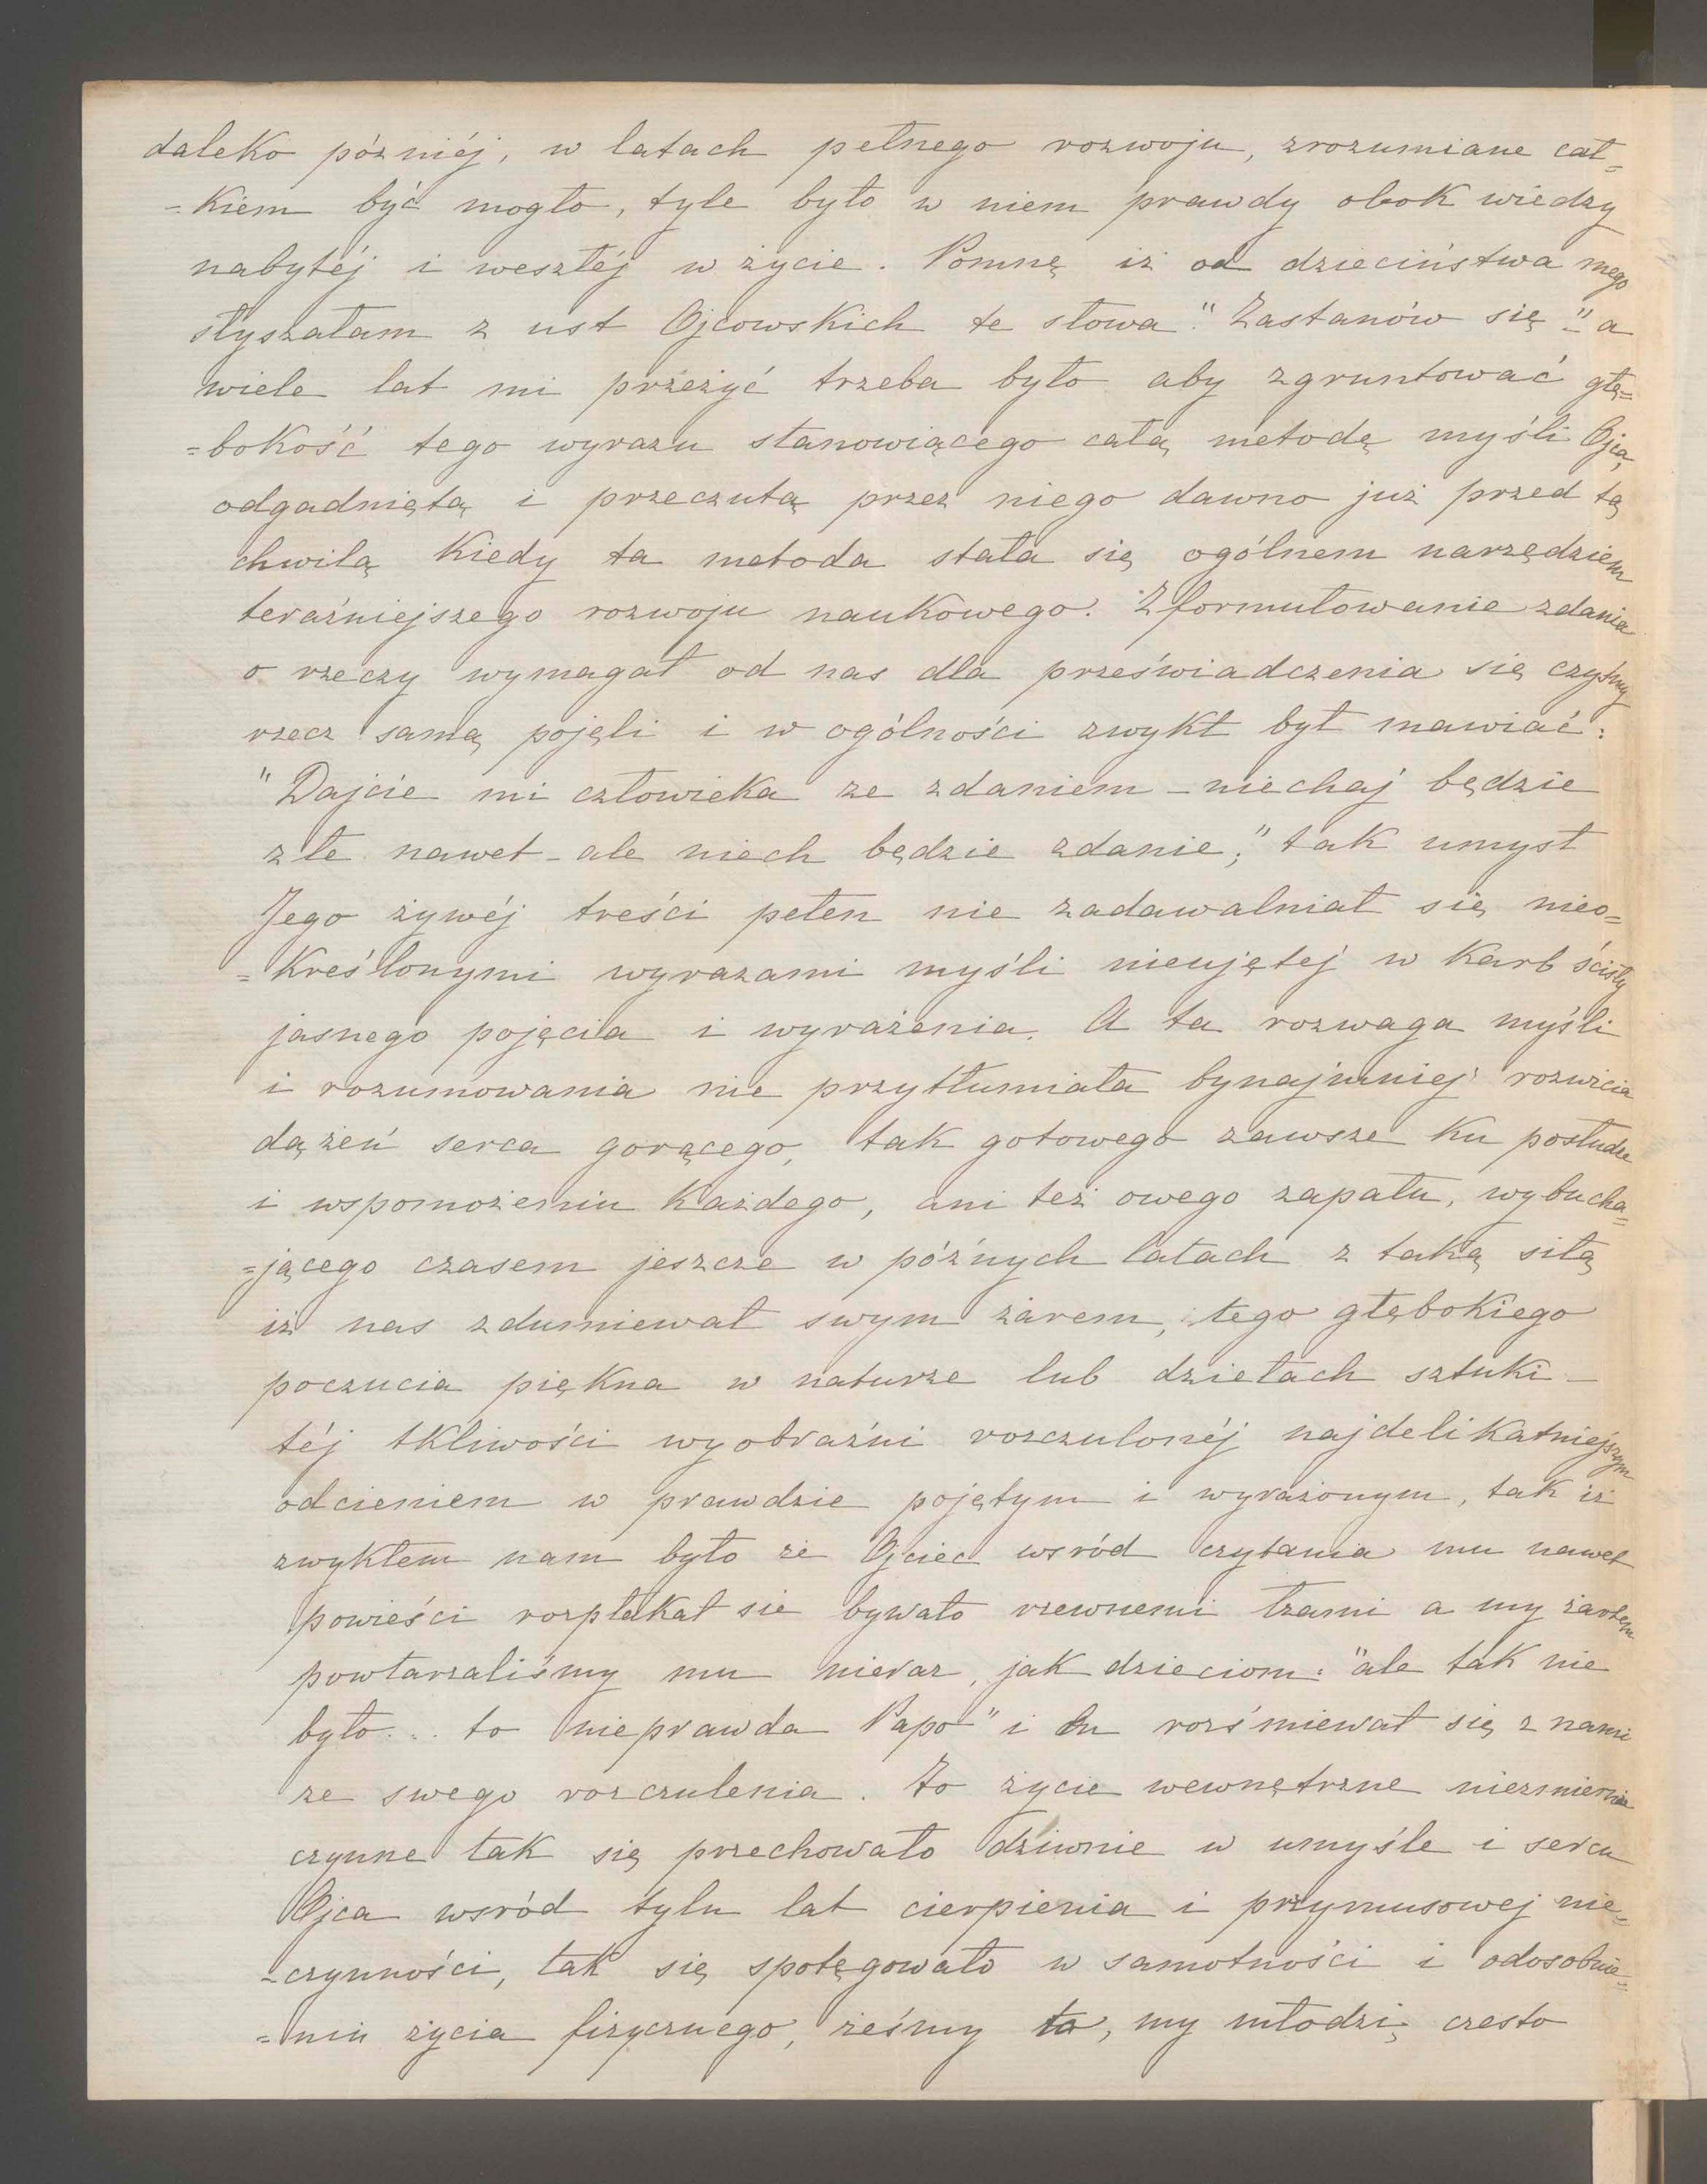 daleko później, w latach pełnego rozwoju, zrozumiane cał=
=kiem być mogło, tyle było w niem prawdy obok wiedzy
nabytéj i weszłéj w życie. Pomnę iż od dzieciństwa mego
słyszałam z ust Ojcowskich te słowa: "Zastanów się" a
wiele lat mi przeżyć trzeba było aby zgruntować głę=
=bokość tego wyrazu stanowiącego całą metodę myśli Ojca,
odgadniętą i przeczutą przez niego dawno już przed tą
chwilą kiedy ta metoda stała się ogólnem narzędziem
teraźniejszego rozwoju naukowego. Zformułowanie zdania
o rzeczy wymagał od nas dla przeświadczenia się czyśmy
rzecz samą pojęli i w ogólności zwykł był mawiać:
"Dajcie mi człowieka ze zdaniem – niechaj będzie
złe nawet – ale niech będzie zdanie;" tak umysł
Jego żywéj treści pełen nie zadawalniał się nieo=
=kreślonymi wyrazami myśli nieujętej w karb ścisły
jasnego pojęcia i wyrażenia. A ta rozwaga myśli
i rozumowania nie przytłumiała bynajmniej rozwicia
dążeń serca gorącego, tak gotowego zawsze ku posłudze
i wspomożeniu każdego, ani też owego zapału, wybucha=
=jącego czasem jeszcze w późnych latach z taką siłą
iż nas zdumiewał swym żarem, tego głębokiego
poczucia piękna w naturze lub dziełach sztuki –
téj tkliwości wyobraźni rozczulonéj najdelikatniejszym
odcieniem w prawdzie pojętym i wyrażonym, tak iż
zwykłem nam było że Ojciec wsród czytania mu nawet
powieści rozpłakał sie bywało rzewnemi łzami a my żartem
powtarzaliśmy mu nieraz, jak dzieciom: "ale tak nie
było... to nieprawda Papo" i On rozśmiewał się z nami
ze swego rozczulenia. To życie wewnętrzne niezmiernie
czynne tak się przechowało dziwnie w umyśle i sercu
Ojca wsród tylu lat cierpienia i przymusowej nie=
=czynności, tak się spotęgowało w samotności i odosobnie=
=niu życia fizycznego, żeśmy to, my młodzi, czesto